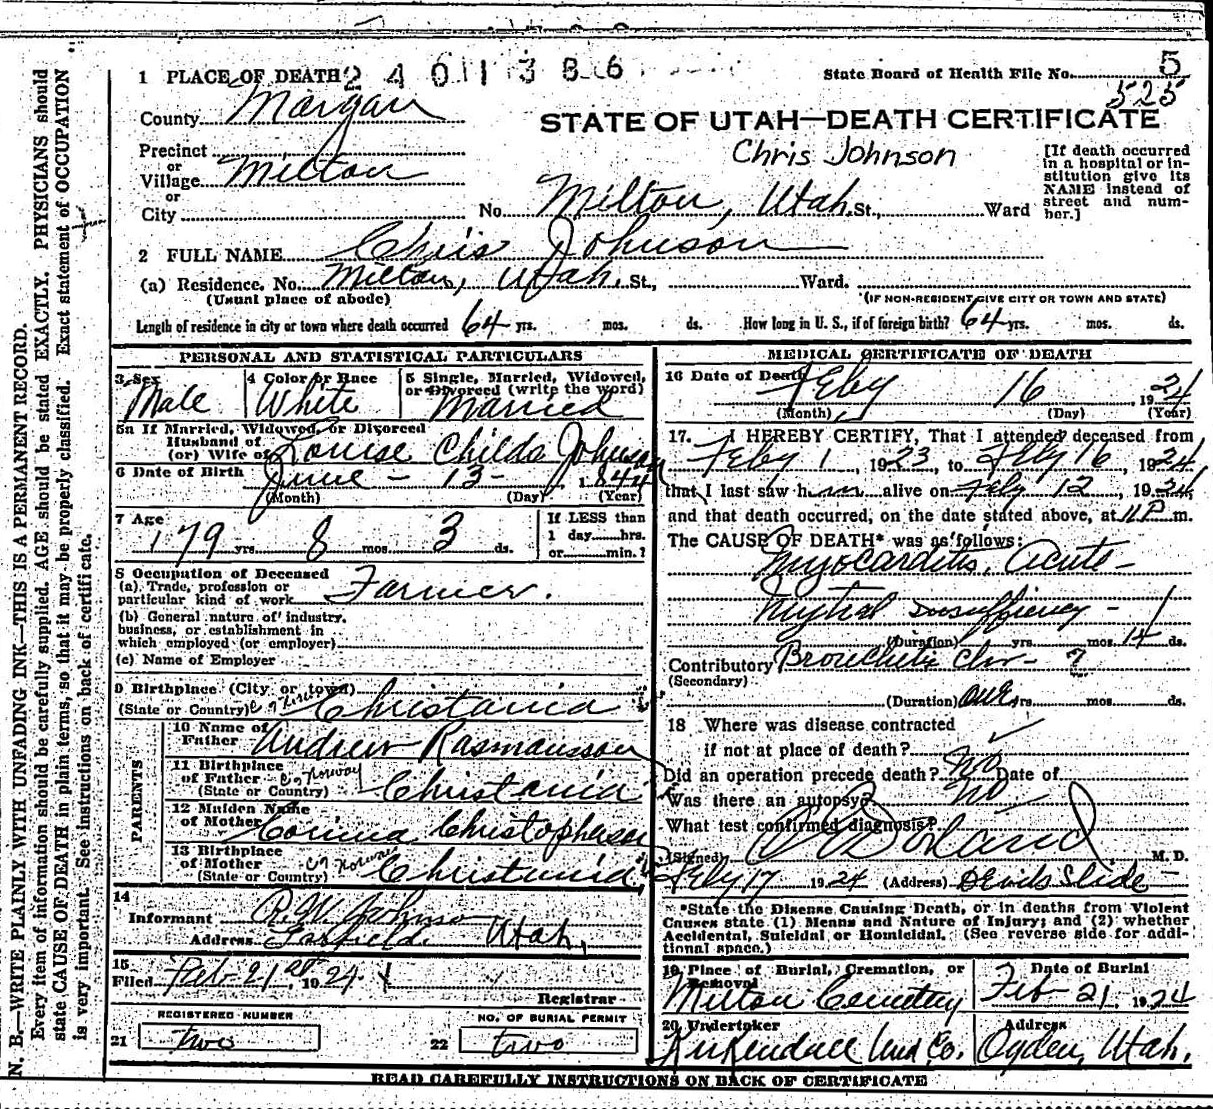 1 PLACE OF DEATH 2 4 0 1 1 3 8 6
State Board of Health File No. 5
525
County Morgan
STATE OF UTAH—DEATH CERTIFICATE
Chris Johnson
Precinct
or
Village Milton
or
City
No. Milton, Utah. St., Ward
[If death occurred
in a hospital or in-
stitution give its
NAME instead of
street and num-
ber.]
2 FULL NAME Chris Johnson
(a) Residence. No. Milton, Utah. St., Ward.
(Usual place of abode)
(IF NON-RESIDENT GIVE CITY OR TOWN AND STATE)
Length of residence in city or town where death occurred 64 yrs. mos. ds. How long in U. S., if of foreign birth? 64 yrs. mos. ds.
PERSONAL AND STATISTICAL PARTICULARS
3 Sex
Male
4 Color or Race
White
5 Single, Married, Widowed,
or Divorced (write the word)
Married
5a If Married, Widowed, or Divorced
Husband of
(or) Wife of Louise Childs Johnson
6 Date of Birth June - 13 - 1844
(Month) (Day) (Year)
7 Age
79 yrs. 8 mos. 3 ds.
If LESS than
1 day hrs.
or min.?
8 Occupation of Deceased
(a) Trade, profession or
particular kind of work Farmer.
(b) General nature of industry,
business, or establishment in
which employed (or employer)
(c) Name of Employer
9 Birthplace (City or town)
(State or Country) Christania
PARENTS
10 Name of
Father Andrew Rasmussson
11 Birthplace
of Father
(State or Country) Norway Christania
12 Maiden Name
of Mother Christopherson
13 Birthplace
of Mother
(State or Country) Norway Christania
14
Informant R.W. Johnson
Address Utah,
15
Filed Feb 21st, 1924
Registrar
REGISTERED NUMBER
21 two
NO. OF BURIAL PERMIT
22 two
MEDICAL CERTIFICATE OF DEATH
16 Date of Death Feby 16 1924
(Month) (Day) (Year)
17. I HEREBY CERTIFY, That I attended deceased from
Feby 1, 1923, to Feby 16, 1924,
that I last saw him alive on Feby 12, 1924,
and that death occurred, on the date stated above, at 11 P m.
The CAUSE OF DEATH* was as follows:
Myocarditis, Acute -
Mytral insufficiency -
(Duration) yrs. mos. 14 ds.
Contributory Bronchitis Chr - ?
(Secondary)
(Duration) one yrs. mos. ds.
18 Where was disease contracted
if not at place of death?
Did an operation precede death? No Date of
Was there an autopsy? no
What test confirmed diagnosis?
(Signed) M. D.
Feby 17 1924 (Address) Devils Slide -
*State the Disease Causing Death, or in deaths from Violent
Causes state (1) Means and Nature of Injury; and (2) whether
Accidental, Suicidal or Homicidal. (See reverse side for addi-
tional space.)
19 Place of Burial, Cremation, or
Removal
Milton Cemetery
Date of Burial
Feb 21. 1924
20 Undertaker
Kirkendall Und Co.
Address
Ogden, Utah.
READ CAREFULLY INSTRUCTIONS ON BACK OF CERTIFICATE
N. B.—WRITE PLAINLY WITH UNFADING INK—THIS IS A PERMANENT RECORD.
Every item of information should be carefully supplied. AGE should be stated EXACTLY. PHYSICIANS should
state CAUSE OF DEATH in plain terms, so that it may be properly classified. Exact statement of OCCUPATION
is very important. See instructions on back of certificate.